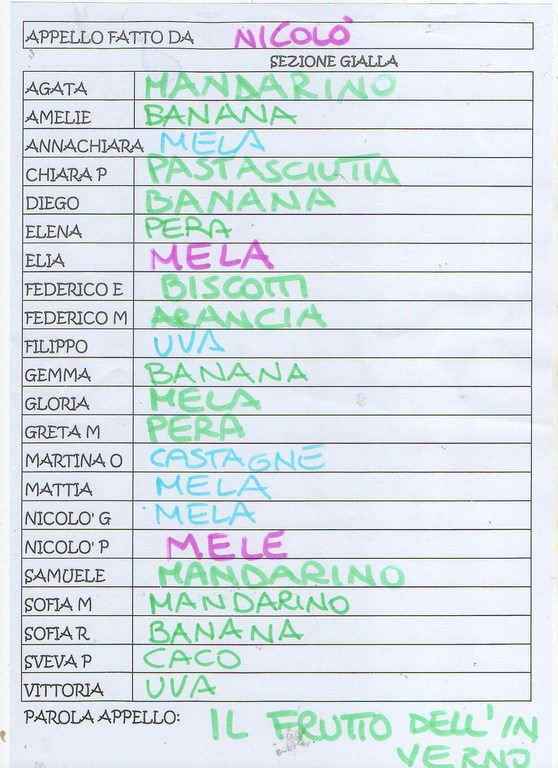 APPELLO FATTO DA NICOLÒ
SEZIONE GIALLA
AGATA MANDARINO
AMELIE BANANA
ANNACHIARA MELA
CHIARA P PASTASCIUTTA
DIEGO BANANA
ELENA PERA
ELIA MELA
FEDERICO E BISCOTTI
FEDERICO M ARANCIA
FILIPPO UVA
GEMMA BANANA
GLORIA MELA
GRETA M PERA
MARTINA O CASTAGNE
MATTIA MELA
NICOLO' G MELA
NICOLO' P MELE
SAMUELE MANDARINO
SOFIA M MANDARINO
SOFIA R BANANA
SVEVA P CACO
VITTORIA UVA
PAROLA APPELLO: IL FRUTTO DELL'IN
VERNO